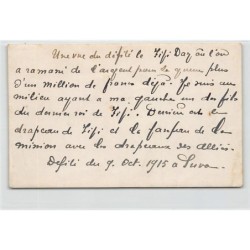 Une vue du défilé le Fiji Day où l'on
a ramani de l'argent pour la guerre plus
d'un million de francs déjà. Je suis au
milieu ayant a ma gauche un des fils
du dernier roi de Fiji. Derrière est le
drapeau de Fiji et la fanfare de la
mission avec les drapeaux des alliés.
Défilé du 9. Oct. 1915 à Suva.